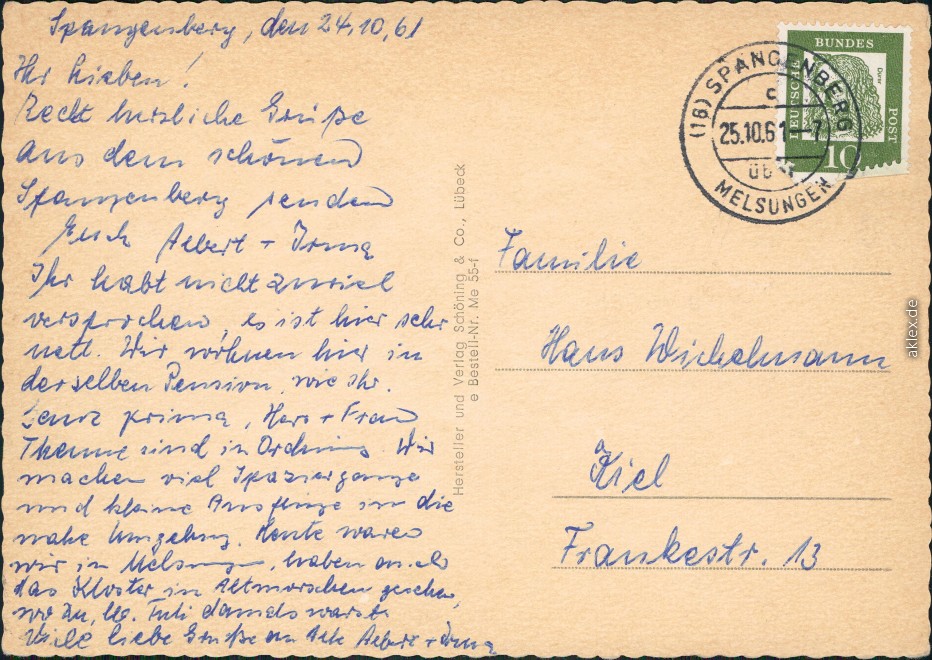 Spangenberg, den 24.10.61
Ihr Lieben!
Recht herzliche Grüße
aus dem schönen
Spangenberg senden
Euch Albert + Irma
Ihr habt nicht zuviel
versprochen, es ist hier sehr
nett. Wir wohnen hier in
derselben Pension, wie Ihr.
Ganz prima, Herr + Frau
sind in Ordnung. Wir
machen viel Spaziergänge
und kleine Ausflüge in die
nahe Umgebung. Heute waren
wir in Melsungen, haben auch
das Kloster in Altmorschen gesehen,
wo Du, damals warst.
Viele liebe Grüße an Alle Albert + Irma
Hersteller und Verlag Schöning & Co., Lübeck
e Bestell-Nr. Me 55-f
(16) SPANGENBERG
c
25.10.61-7
über
MELSUNGEN
DEUTSCHE
BUNDES
POST
Dürer
10
Familie
Hans Wichelmann
Kiel
Frankestr. 13
aklex.de